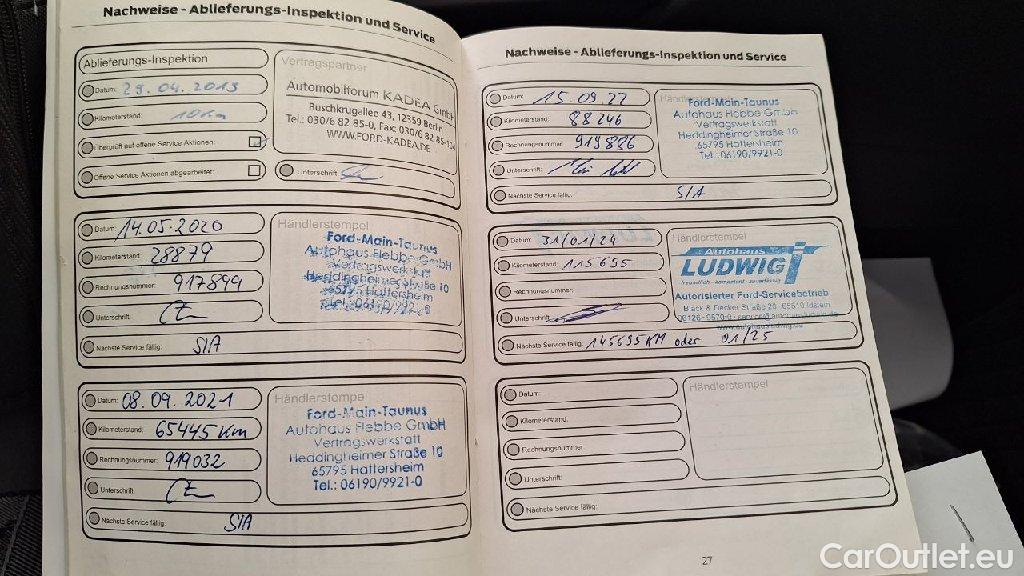 Nachweise - Ablieferungs-Inspektion und Service
Ablieferungs-Inspektion
Datum: 29.04.2019
Kilometerstand: 10 Km
Überprüft auf offene Service Aktionen:
Offene Service Aktionen abgearbeitet:
Vertragspartner
Automobilforum KADEA GmbH
Buschkrugallee 43, 12359 Berlin
Tel.: 030/6 82 85-0, Fax: 030/6 82 85-124
WWW.FORD-KADEA.DE
Unterschrift:
Datum: 14.05.2020
Kilometerstand: 28879
Rechnungsnummer: 917899
Unterschrift:
Nächste Service fällig: S/A
Händlerstempel
Ford-Main-Taunus
Autohaus Flebbe GmbH
Vertragswerkstatt
Heddingheimer Straße 10
65795 Hattersheim
Tel.: 06190/9921-0
Datum: 08.09.2021
Kilometerstand: 65445 Km
Rechnungsnummer: 919032
Unterschrift:
Nächste Service fällig: S/A
Händlerstempel
Ford-Main-Taunus
Autohaus Flebbe GmbH
Vertragswerkstatt
Heddingheimer Straße 10
65795 Hattersheim
Tel.: 06190/9921-0
Nachweise - Ablieferungs-Inspektion und Service
Datum: 15.09.22
Kilometerstand: 88246
Rechnungsnummer: 919886
Unterschrift:
Nächste Service fällig: S/A
Ford-Main-Taunus
Autohaus Flebbe GmbH
Vertragswerkstatt
Heddingheimer Straße 10
65795 Hattersheim
Tel.: 06190/9921-0
Datum: 31/01/24
Kilometerstand: 115655
Rechnungsnummer:
Unterschrift:
Nächste Service fällig: 145595 KM oder 01/25
Händlerstempel
Autohaus
LUDWIG
Autorisierter Ford-Servicebetrieb
Datum:
Kilometerstand:
Rechnungsnummer:
Unterschrift:
Nächste Service fällig:
Händlerstempel
27
CarOutlet.eu